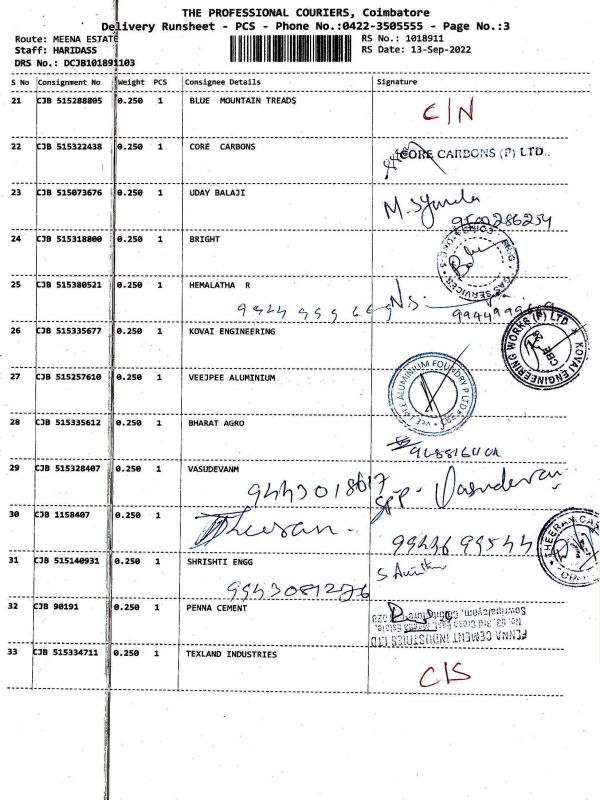 THE PROFESSIONAL COURIERS, Coimbatore
Delivery Runsheet - PCS - Phone No.:0422-3505555 - Page No.:3
Route: MEENA ESTATE
RS No.: 1018911
Staff: HARIDASS
RS Date: 13-Sep-2022
DRS No.: DCJB101891103
S No Consignment No Weight PCS Consignee Details Signature
21 CJB 515288805 0.250 1 BLUE MOUNTAIN TREADS C/N
22 CJB 515322438 0.250 1 CORE CARBONS CORE CARBONS (P) LTD..
23 CJB 515073676 0.250 1 UDAY BALAJI
24 CJB 515318800 0.250 1 BRIGHT
25 CJB 515380521 0.250 1 HEMALATHA R N.S.
26 CJB 515335677 0.250 1 KOVAI ENGINEERING KOVAI ENGINEERING WORKS (P) LTD CBE
27 CJB 515257610 0.250 1 VEEJPEE ALUMINIUM VEEJPEE ALUMINIUM FOUNDRY P LTD
28 CJB 515335612 0.250 1 BHARAT AGRO
29 CJB 515328407 0.250 1 VASUDEVANM 9443018617 Vasudevan
30 CJB 1158407 0.250 1 Dheeran 99436 99544
31 CJB 515140931 0.250 1 SHRISHTI ENGG
9943081276
32 CJB 90191 0.250 1 PENNA CEMENT PENNA CEMENT INDUSTRIES LTD
No. 63, 3rd Cross East, Meena Estate,
Sowripalayam, Coimbatore
33 CJB 515334711 0.250 1 TEXLAND INDUSTRIES C/S